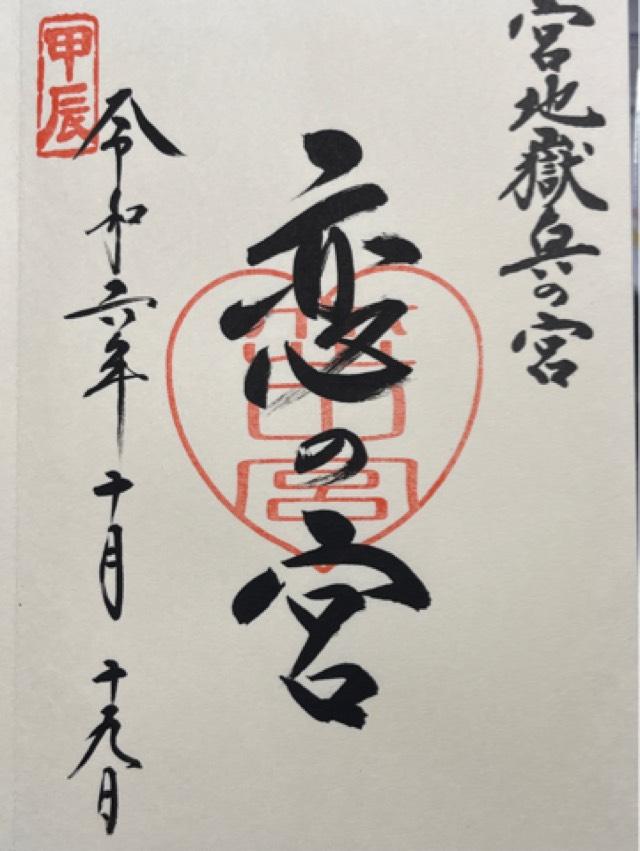 宮地嶽奥の宮
恋の宮
甲辰
令和六年十月十九日